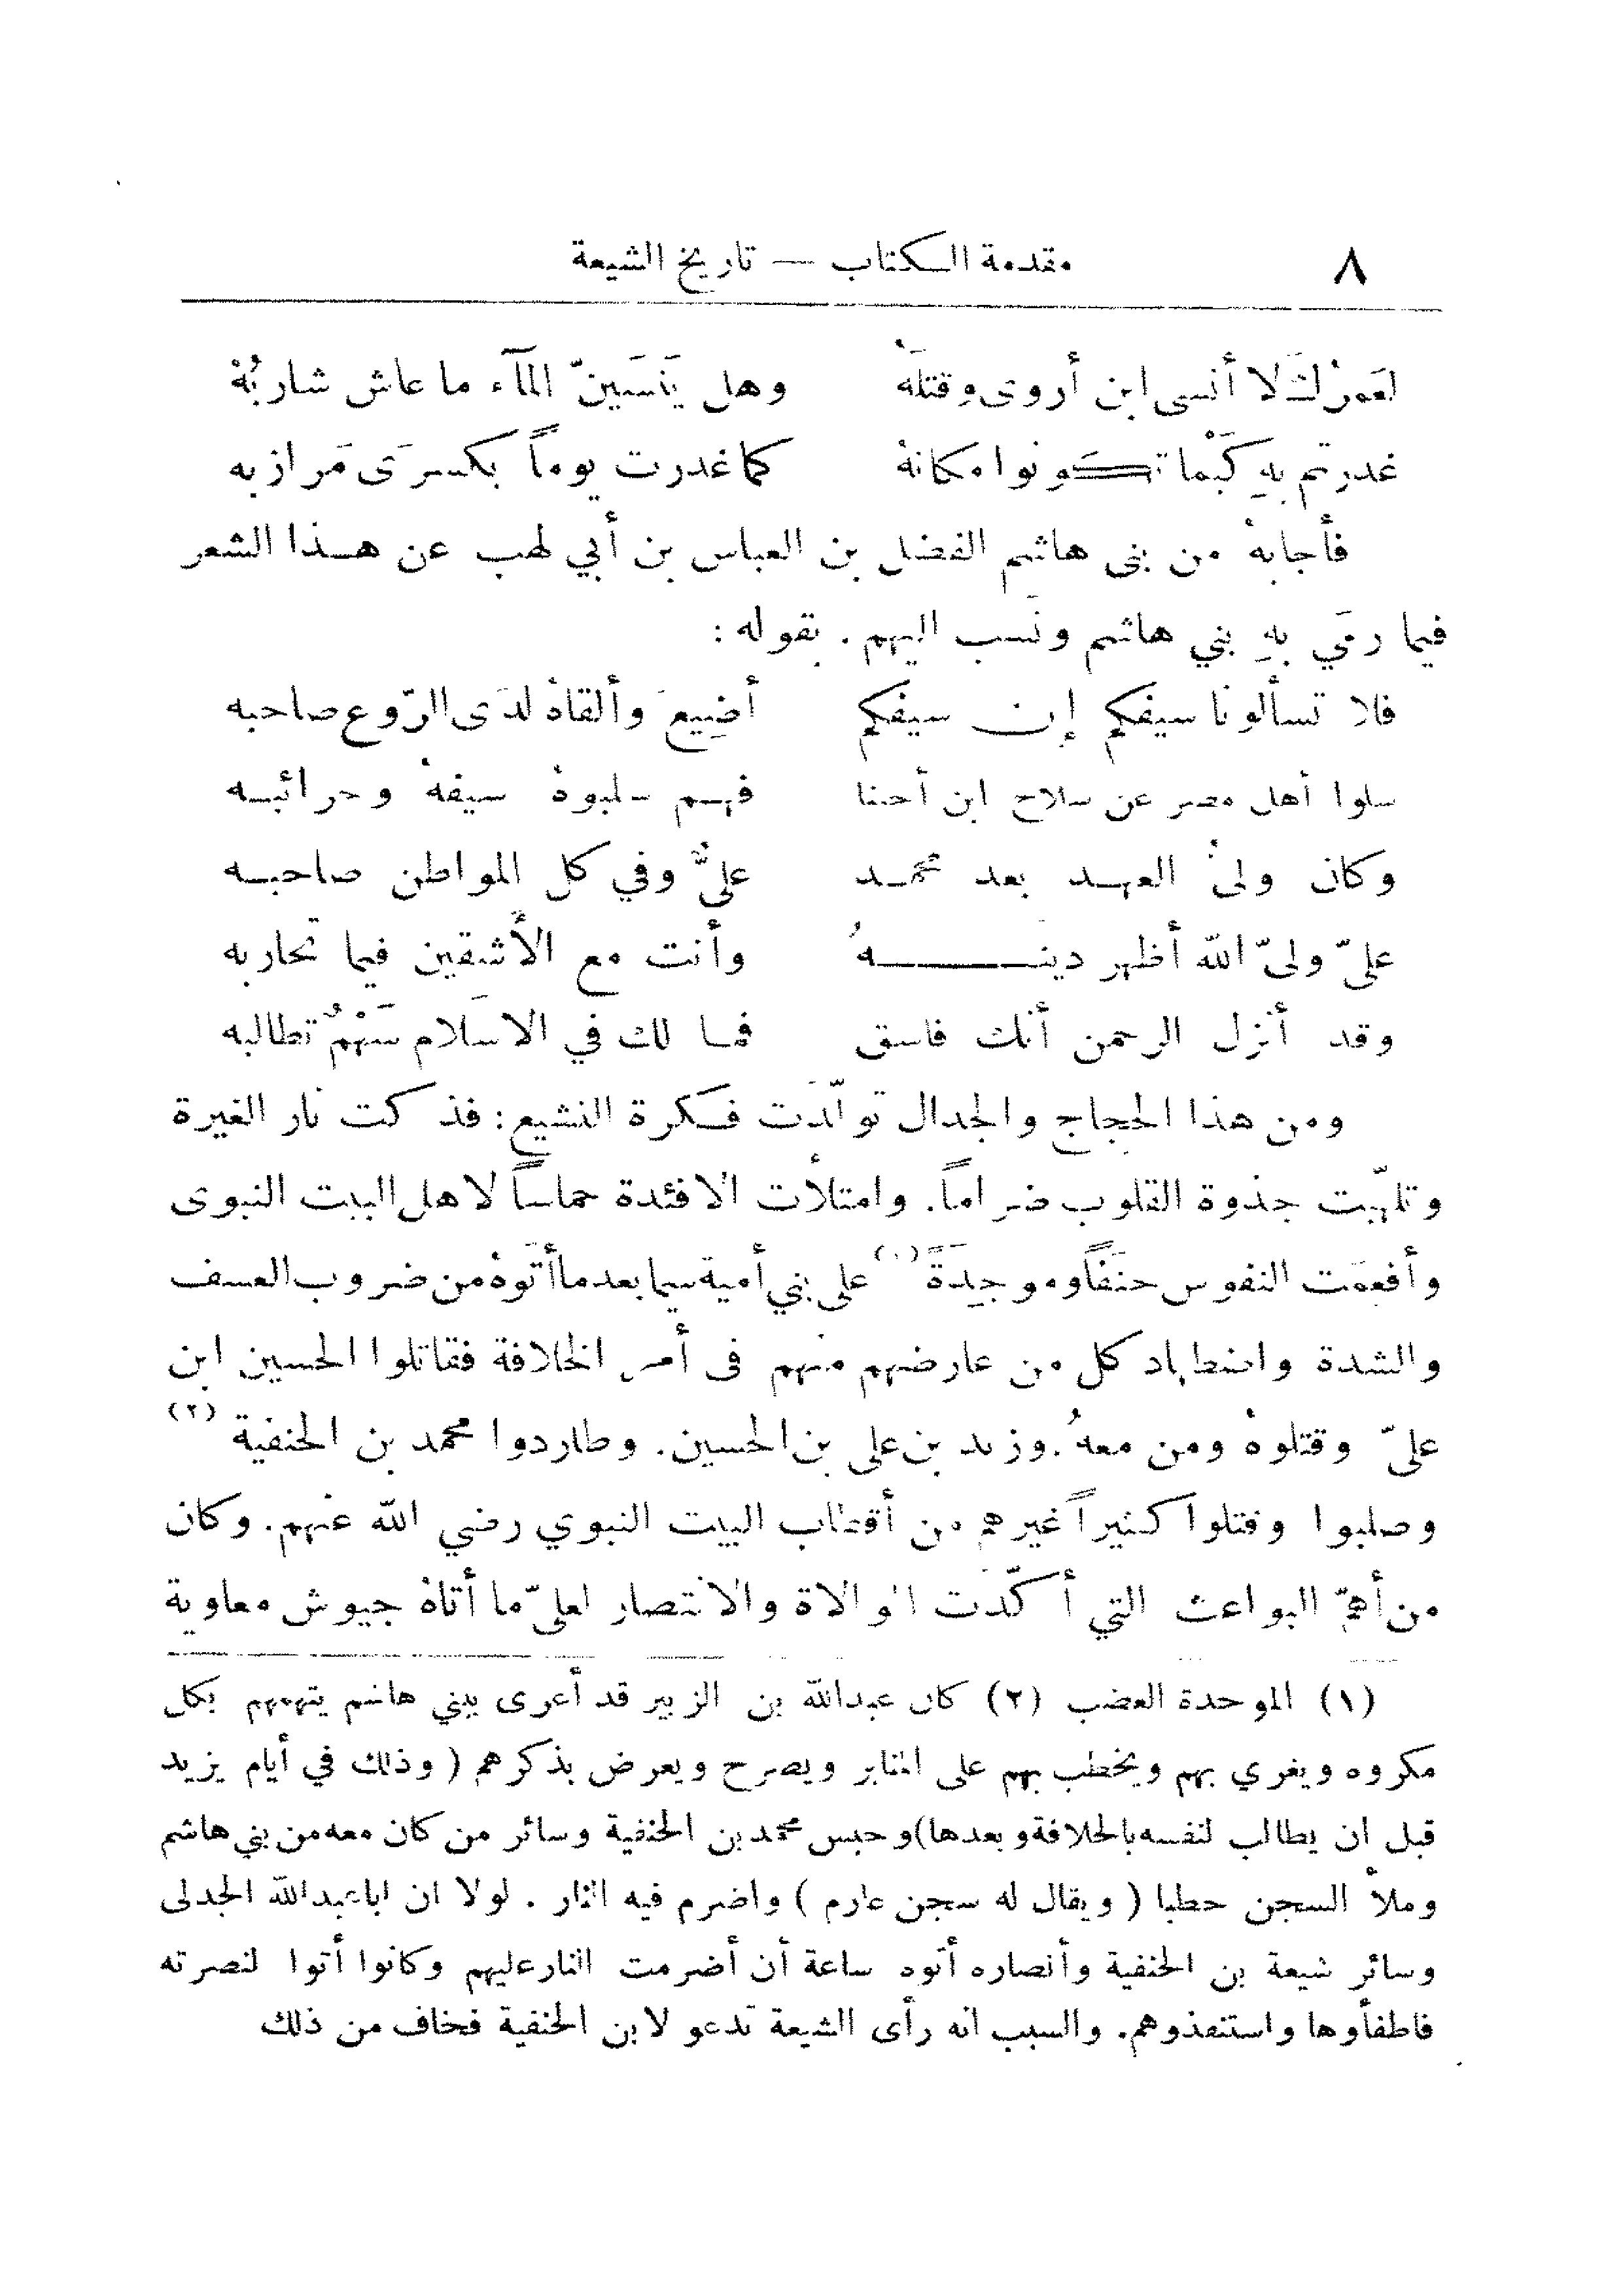 ٨ مقدمة الكتاب — تاريخ الشيعة
لعَمرُكَ لا أنسى ابن أروى وقتلَهُ وهل يَنسَينّ المآء ما عاش شاربُهْ
غدرتم بهِ كَيْما تكونوا مكانهُ كما غدرت يوماً بكسرَى مَرازبه
فأجابهُ من بنى هاشم الفضل بن العباس بن أبي لهب عن هذا الشعر
فيما رمَي بهِ بني هاشم ونَسب اليهم. بقوله :
فلا تسألونا سيفكم إن سيفكم أضِيعَ وألقاهُ لدَى الرّوع صاحبه
سلوا أهل مصر عن سلاح ابن أحتنا فهم سلبوهُ سيفهُ وحرائبه
وكان ولىُّ العهد بعد محمد علىٌّ وفي كل المواطن صاحبه
علىّ ولىّ اللّه أظهر دينهُ وأنت مع الأشقين فيما تحاربه
وقد أنزل الرحمن أنك فاسق فما لك في الاسلام سَهْمٌ تطالبه
ومن هذا الحجاج والجدال تولّدَت فكرة التشيع: فذ كت نار الغيرة
وتلهّبت جذوة القلوب ضراماً. وامتلأت الافئدة حماساً لاهل البيت النبوى
وأفعمَت النفوس حنَقاً وموجِدَةً (١) على بني أمية سيما بعد ما أتَوهُ من ضروب العسف
والشدة واضطهاد كل من عارضهم منهم فى أمر الخلافة فقاتلوا الحسين ابن
علىّ وقتلوهُ ومن معهُ. وزيد بن على بن الحسين. وطاردوا محمد بن الحنفية (٢)
وصلبوا وقتلوا كثيراً غيرهم من أقطاب البيت النبوي رضي اللّه عنهم. وكان
من أهمّ البواعث التي أكّدَت الموالاة والانتصار لعلىّ ما أتاهُ جيوش معاوية
(١) الموحدة الغضب (٢) كان عبدالله بن الزبير قد أغرى ببني هاشم يتهمهم بكل
مكروه ويغري بهم ويخطب بهم على المنابر ويصرح ويعرض بذكرهم ( وذلك في أيام يزيد
قبل ان يطالب لنفسه بالخلافة وبعدها) وحبس محمد بن الحنفية وسائر من كان معه من بني هاشم
وملأ السجن حطبا ( ويقال له سجن عارم ) واضرم فيه النار . لولا ان اباعبدالله الجدلى
وسائر شيعة بن الحنفية وأنصاره أتوه ساعة أن أضرمت النار عليهم وكانوا أتوا لنصرته
فاطفأوها واستنقذوهم. والسبب انه رأى الشيعة تدعو لابن الحنفية فخاف من ذلك